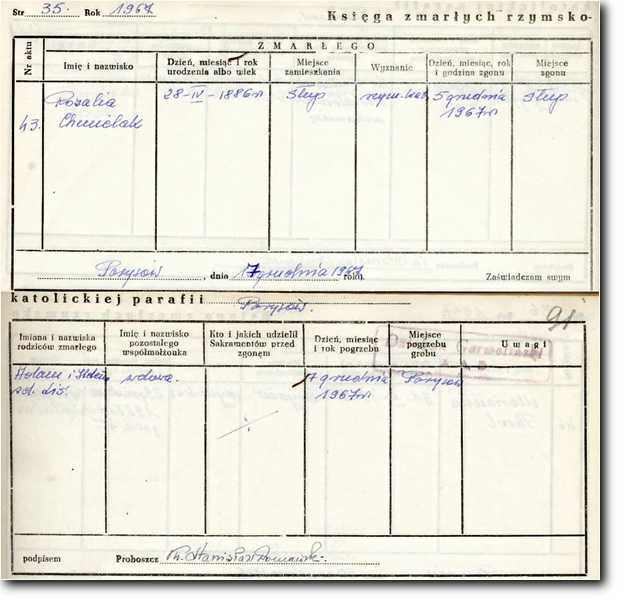 Str 35. Rok 1967 Księga zmarłych rzymsko-
Nr aktu
ZMARŁEGO
Imię i nazwisko
Dzień, miesiąc i rok urodzenia albo wiek
Miejsce zamieszkania
Wyznanie
Dzień, miesiąc, rok i godzina zgonu
Miejsce zgonu
43.
Rozalia
Chmielak
28-IV-1886 r.
Słup
rzym. kat.
5 grudnia
1967 r.
Słup
Parysów, dnia 7 grudnia 1967 roku. Zaświadczam swym
katolickiej parafii Parysów.
91
Imiona i nazwiska rodziców zmarłego
Imię i nazwisko pozostałego współmałżonka
Kto i jakich udzielił Sakramentów przed zgonem
Dzień, miesiąc i rok pogrzebu
Miejsce pogrzebu grobu
Uwagi
Adam i
wdowa.
7 grudnia
1967 r.
Parysów
podpisem Proboszcz Ks. Stanisław